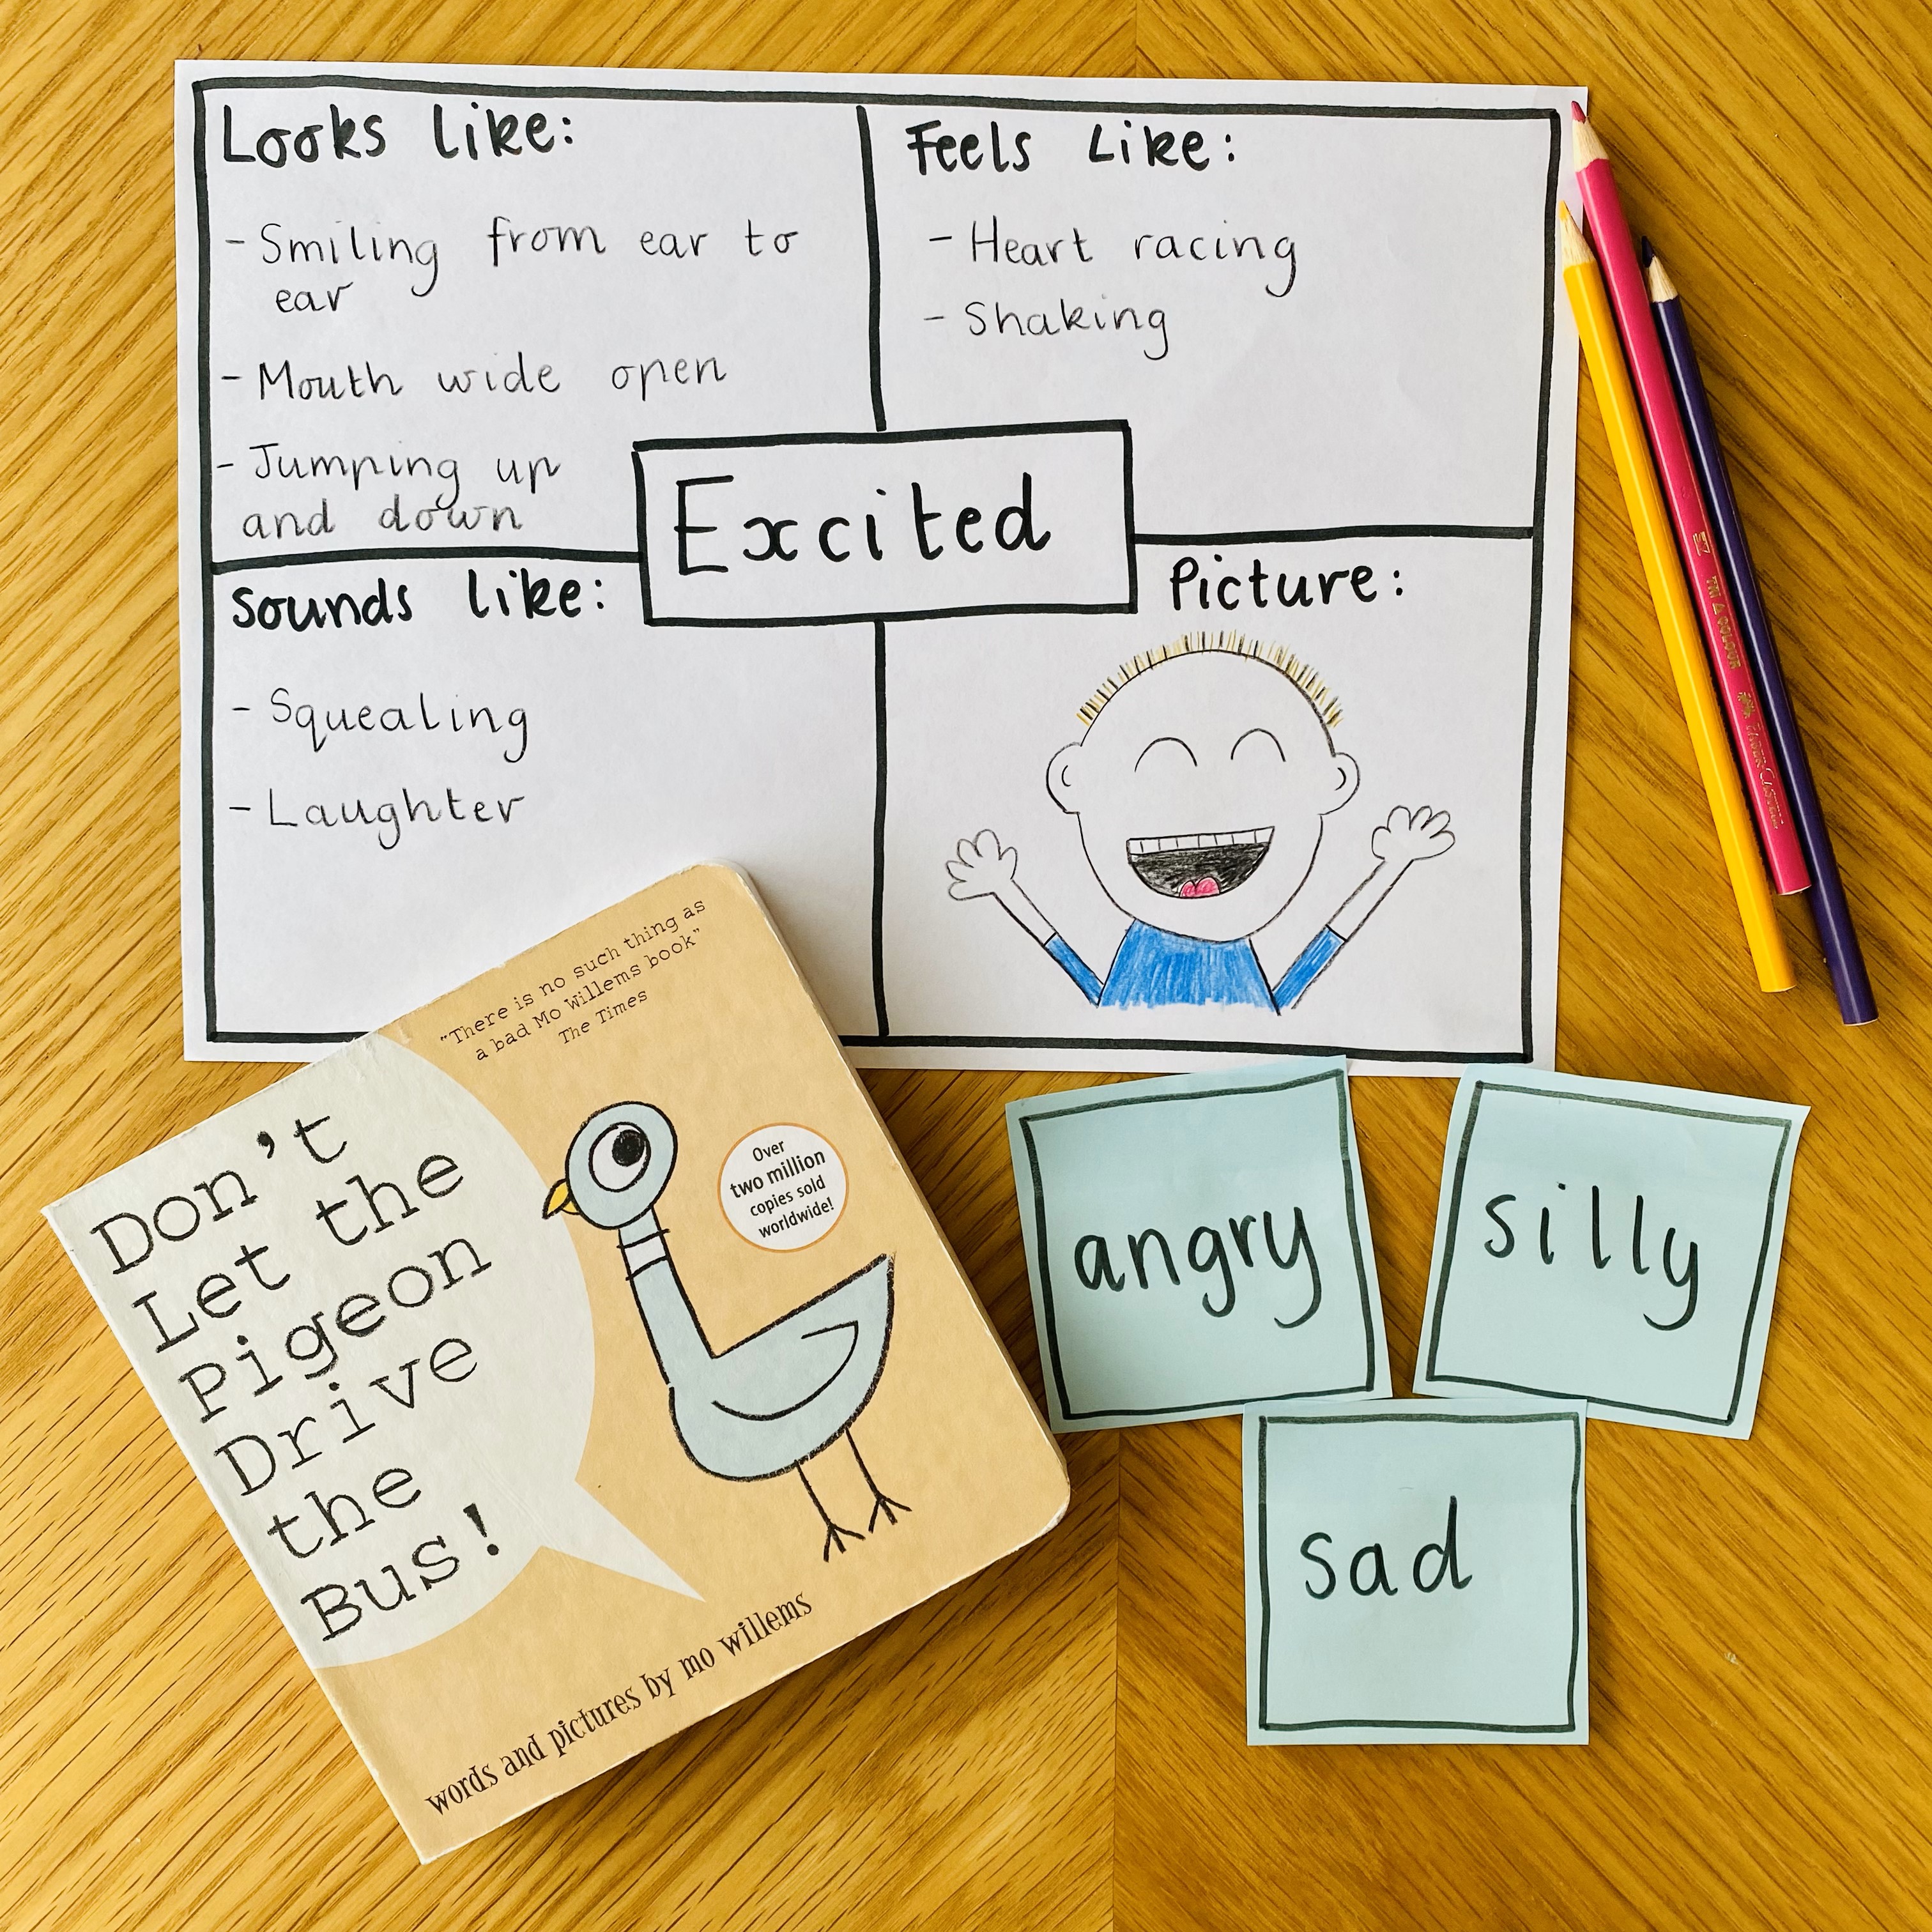 Looks like:
- Smiling from ear to
ear
- Mouth wide open
- Jumping up
and down
Feels Like:
- Heart racing
- Shaking
Excited
Sounds like:
- Squealing
- Laughter
Picture:
"There is no such thing as
a bad Mo Willems book"
The Times
Don't
Let the
Pigeon
Drive
the
Bus!
Over
two million
copies sold
worldwide!
words and pictures by mo willems
angry
silly
sad
FABER-CASTELL